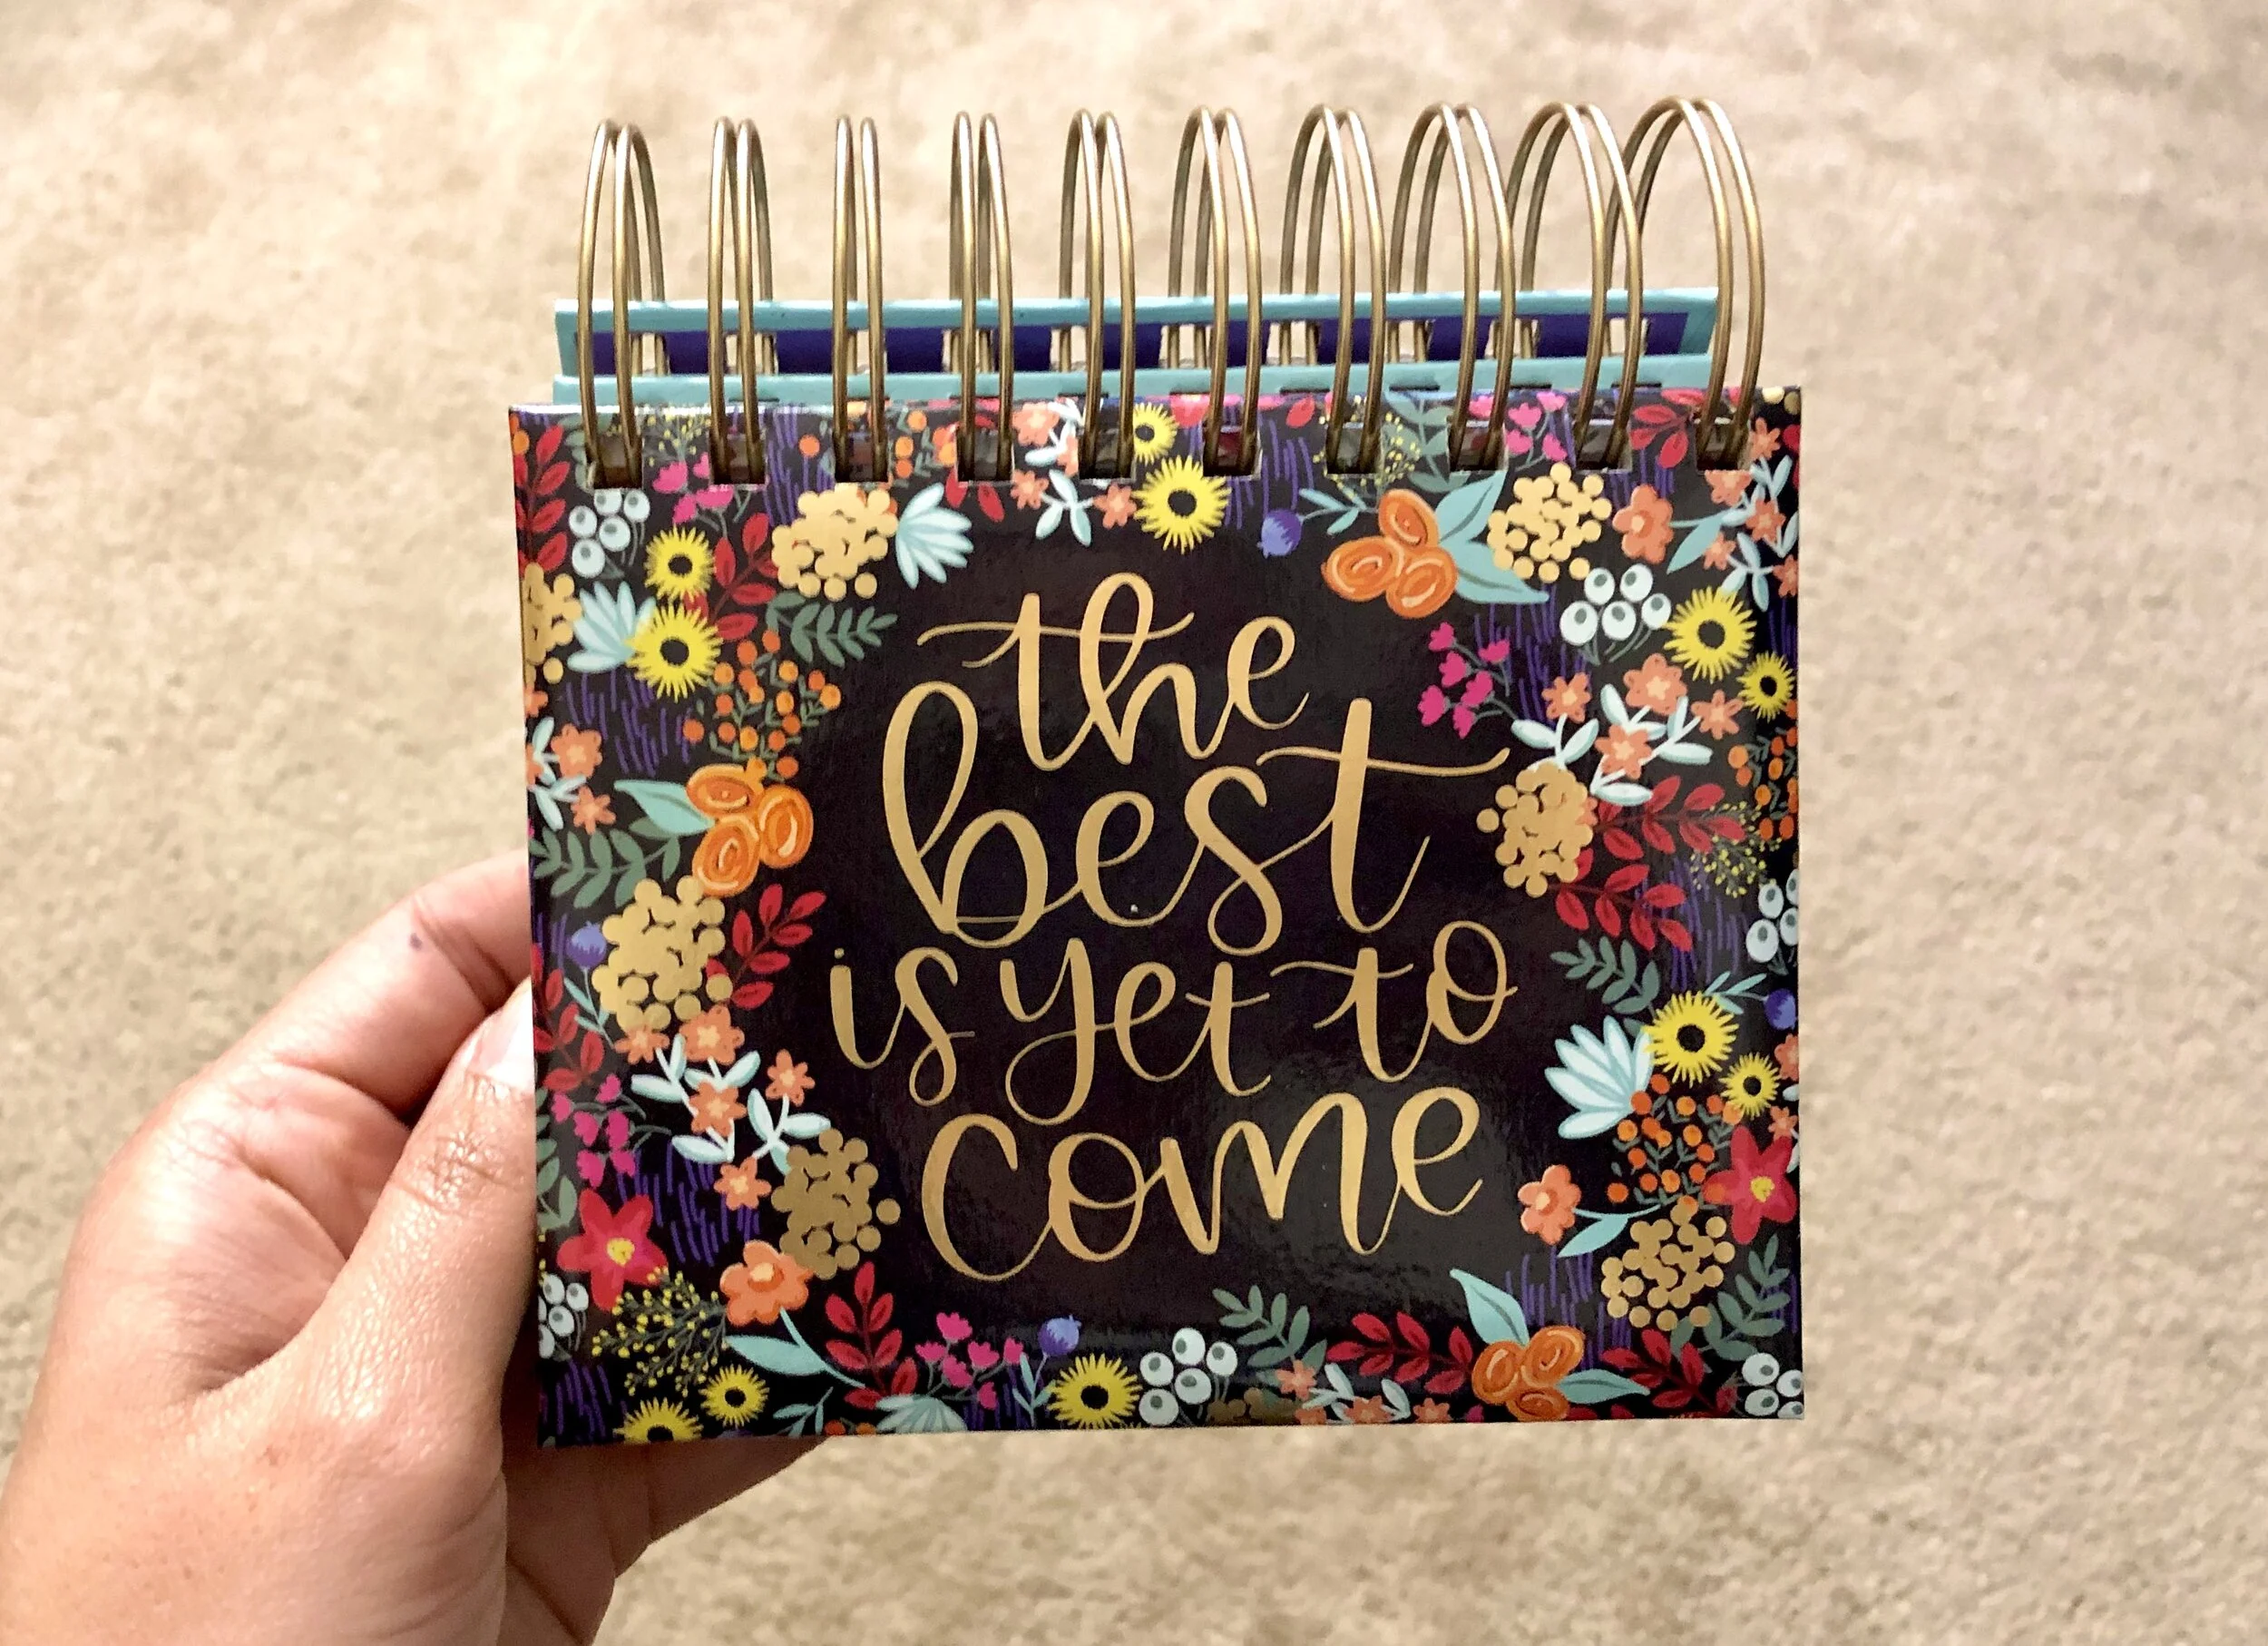 the
best
is yet to
come